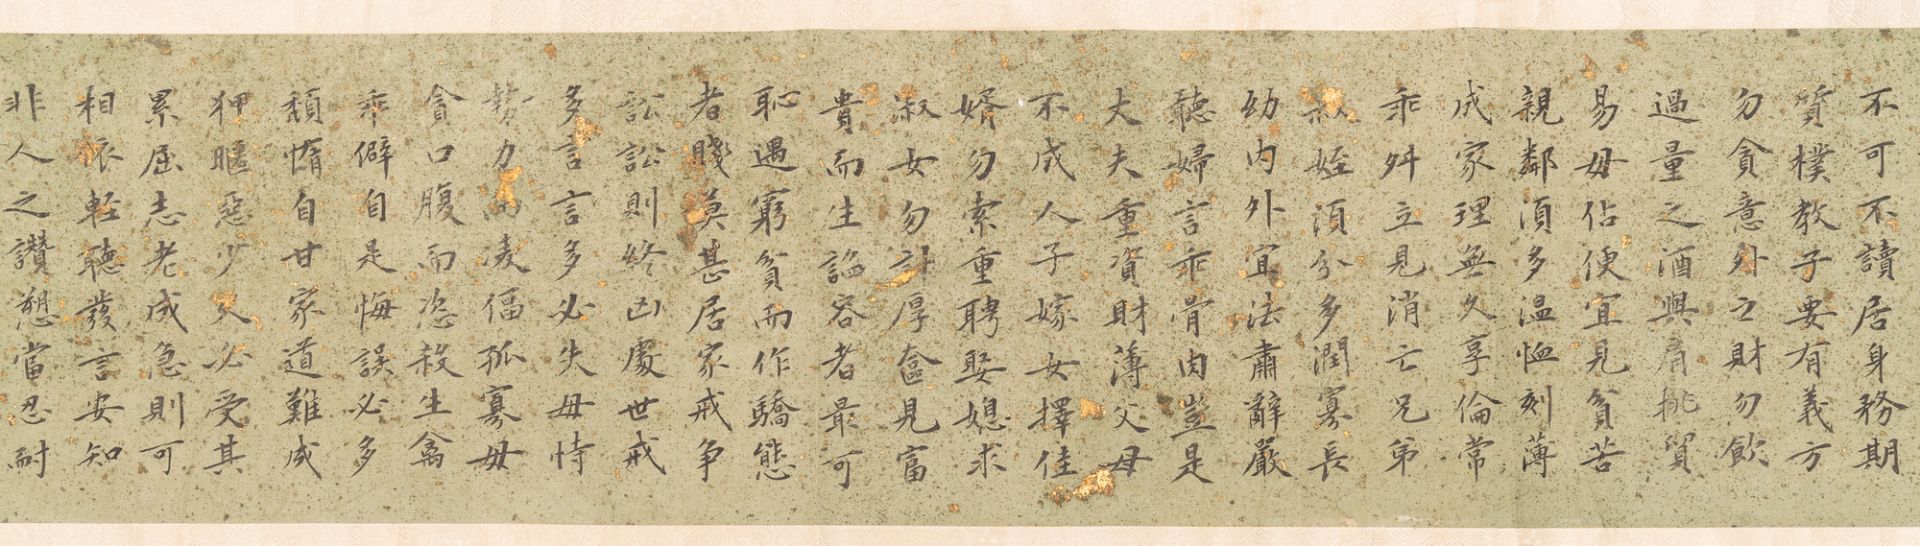 不可不讀居身務期
質樸教子要有義方
勿貪意外之財勿飲
過量之酒與肩挑貿
易毋佔便宜見貧苦
親鄰須多温恤刻薄
成家理無久享倫常
乖舛立見消亡兄弟
叔姪須分多潤寡長
幼內外宜法肅辭嚴
聽婦言乖骨肉豈是
大夫重資財薄父母
不成人子嫁女擇佳
婿勿索重聘娶媳求
淑女勿計厚奩見富
貴而生諂容者最可
恥遇窮貧而作驕態
者賤莫甚居家戒爭
訟訟則終凶處世戒
多言言多必失毋恃
勢力而凌偪孤寡毋
貪口腹而恣殺生禽
乖僻自是悔誤必多
頹惰自甘家道難成
狎暱惡少久必受其
累屈志老成急則可
相依輕聽發言安知
非人之讚愬當忍耐